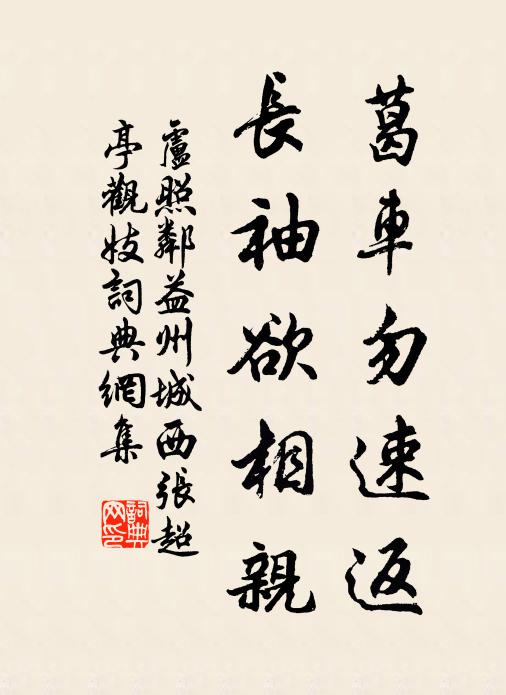 葛車勿速返
長袖欲相親
盧照鄰益州城西張超
亭觀妓詞典網集
詞典
网印